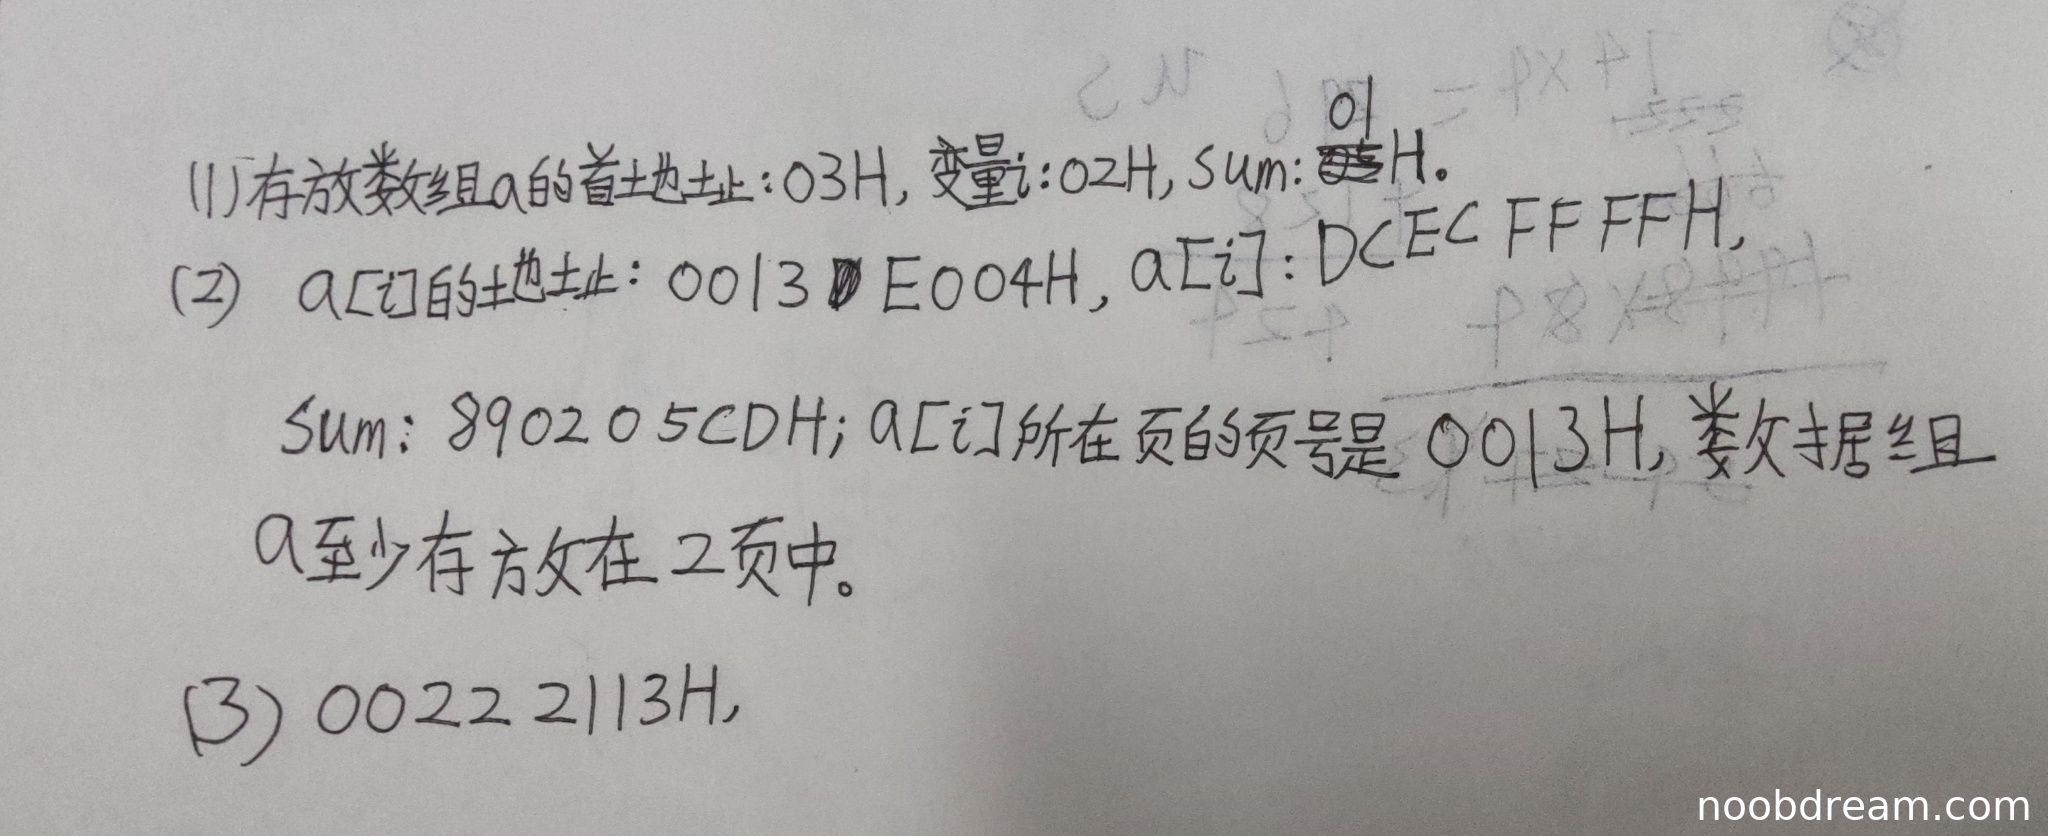 (1)存放数组a的首地址:03H,变量i:02H,sum:01H。
(2) a[i]的地址:0013 E004H,a[i]:DCEC FF FFH,
sum:890205CDH;a[i]所在页的页号是0013H,数据组
a至少存放在2页中。
(3) 0022 2113H,
noobdream.com